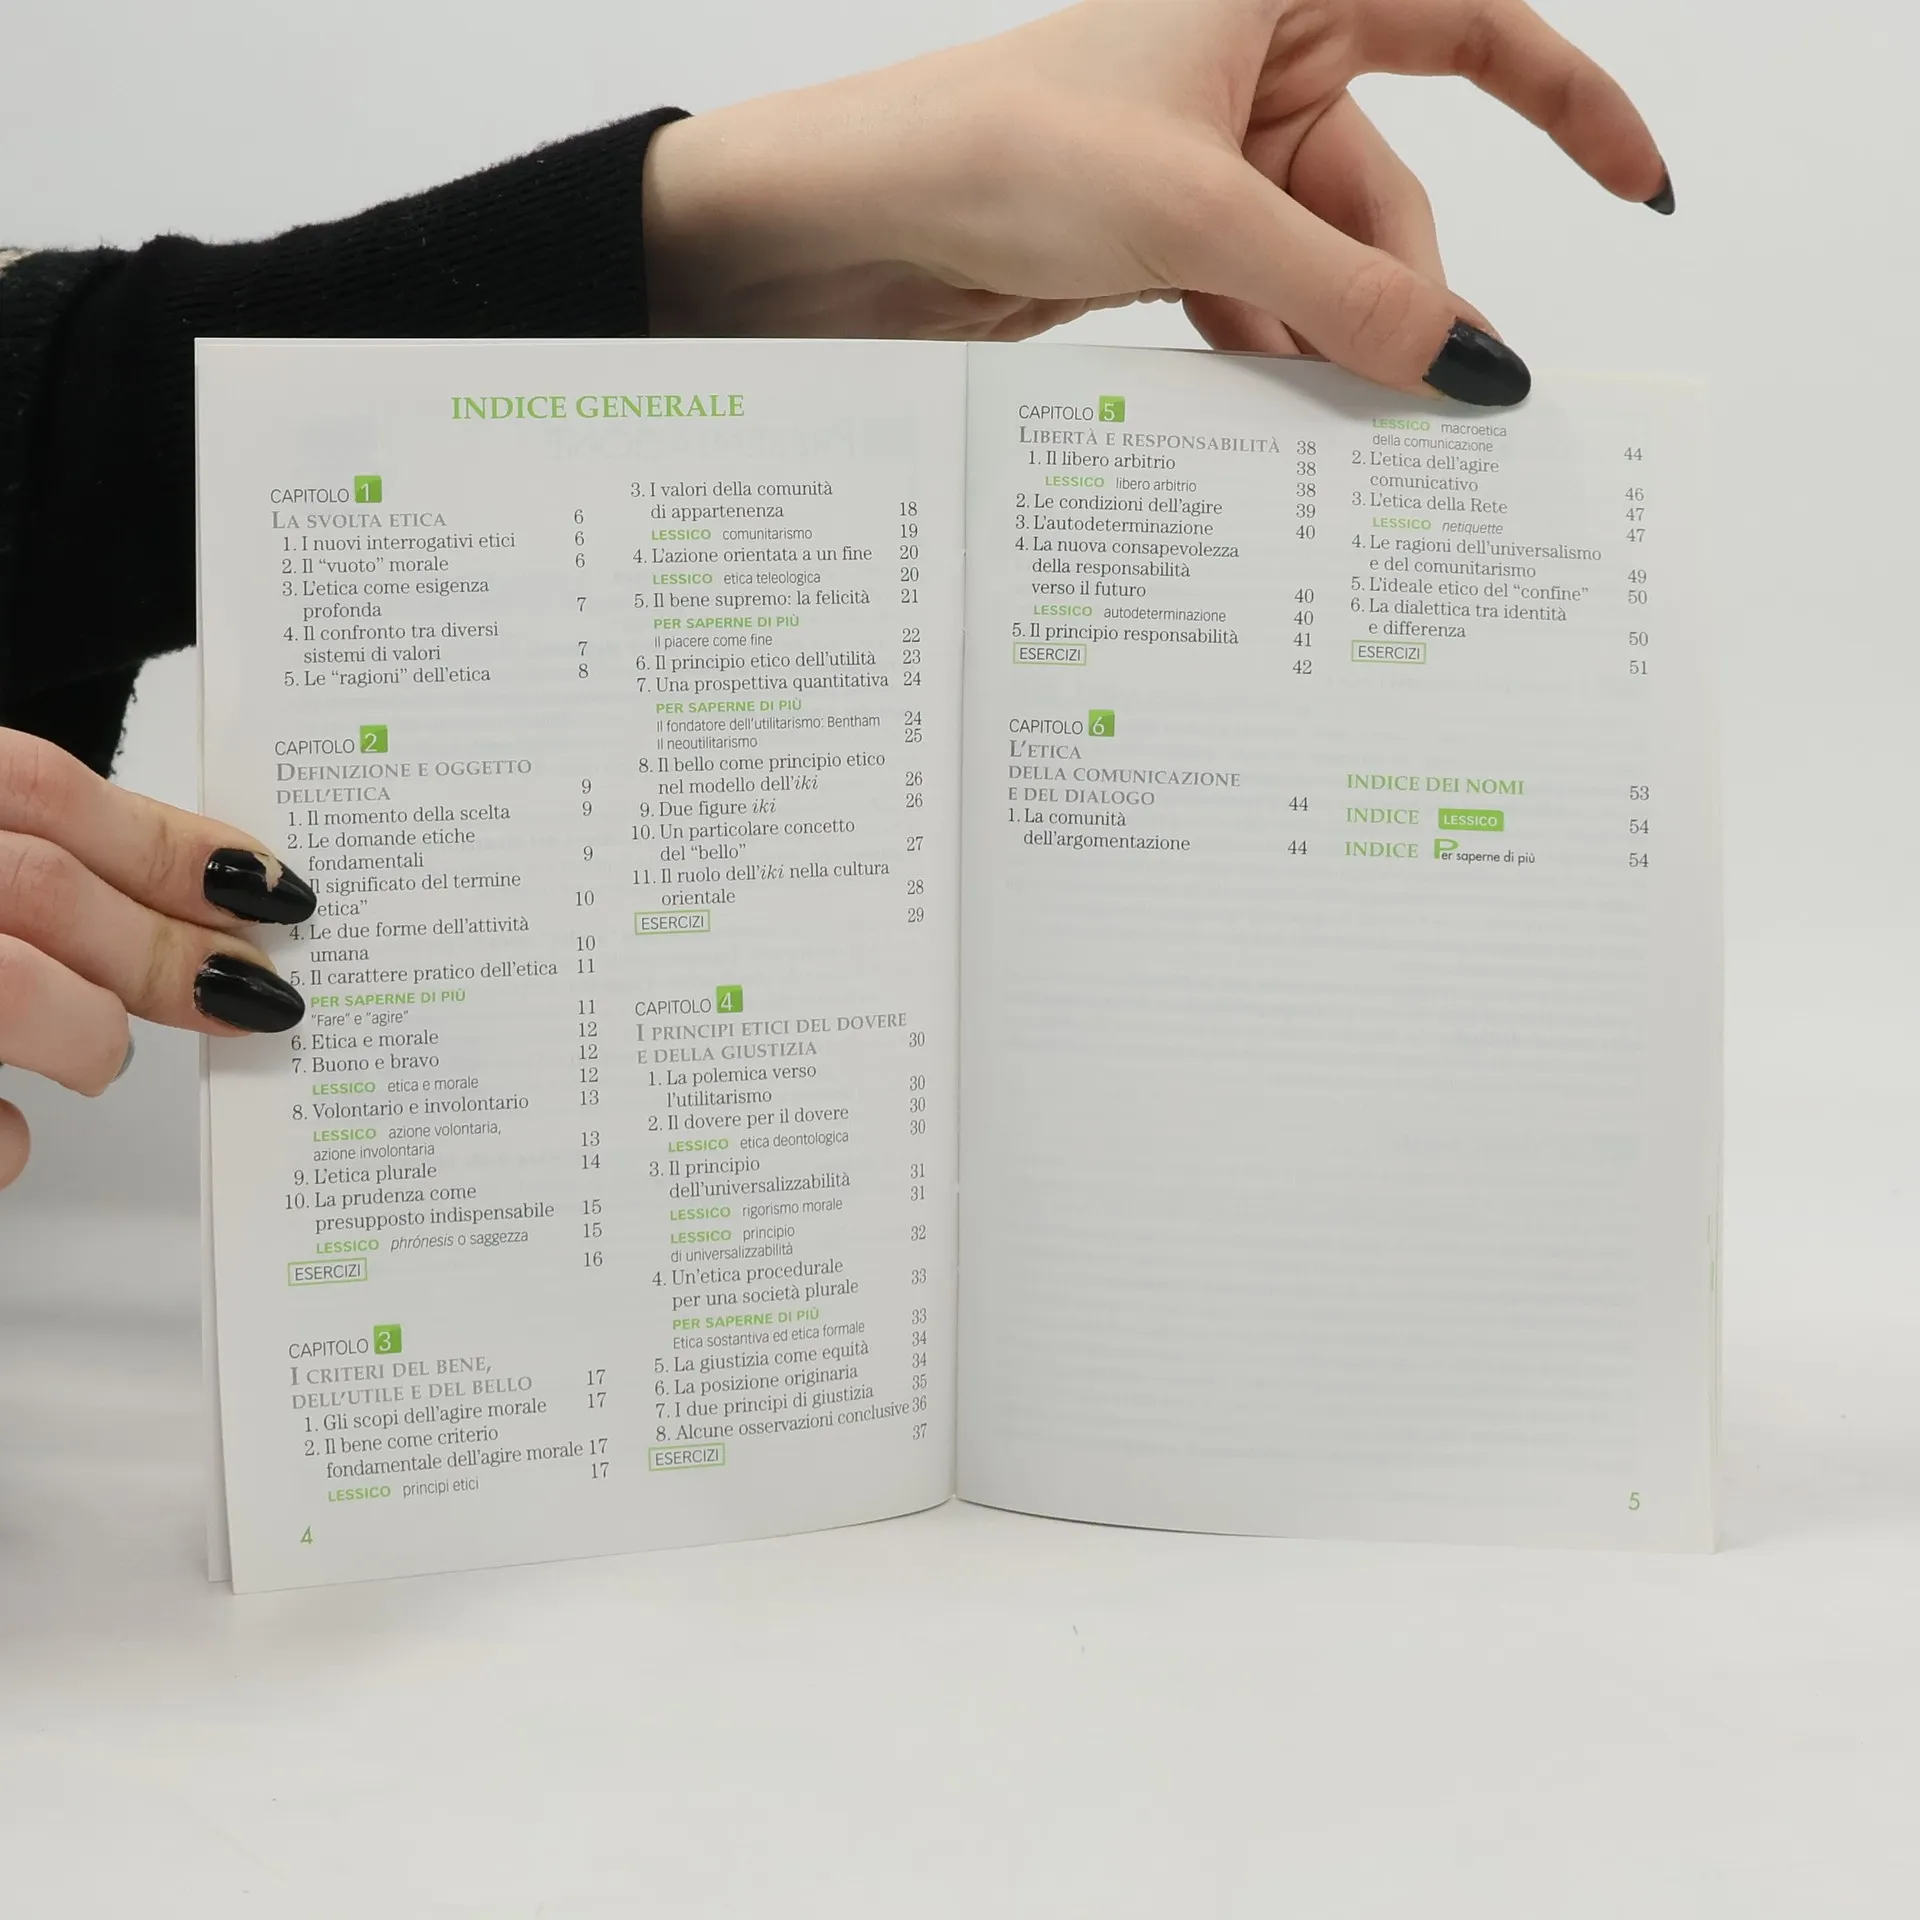 INDICE GENERALE
CAPITOLO 1
LA SVOLTA ETICA 6
1. I nuovi interrogativi etici 6
2. Il “vuoto” morale 6
3. L'etica come esigenza
profonda 7
4. Il confronto tra diversi
sistemi di valori 7
5. Le “ragioni” dell'etica 8
CAPITOLO 2
DEFINIZIONE E OGGETTO
DELL'ETICA 9
1. Il momento della scelta 9
2. Le domande etiche
fondamentali 9
Il significato del termine
etica” 10
4. Le due forme dell'attività
umana 10
5. Il carattere pratico dell'etica 11
PER SAPERNE DI PIÙ
“Fare” e “agire” 11
6. Etica e morale 12
7. Buono e bravo 12
LESSICO etica e morale 12
8. Volontario e involontario 13
LESSICO azione volontaria,
azione involontaria 13
9. L'etica plurale 14
10. La prudenza come
presupposto indispensabile 15
LESSICO phrónesis o saggezza 15
ESERCIZI 16
CAPITOLO 3
I CRITERI DEL BENE,
DELL'UTILE E DEL BELLO 17
1. Gli scopi dell'agire morale 17
2. Il bene come criterio
fondamentale dell'agire morale 17
LESSICO principi etici 17
4
3. I valori della comunità
di appartenenza 18
LESSICO comunitarismo 19
4. L'azione orientata a un fine 20
LESSICO etica teleologica 20
5. Il bene supremo: la felicità 21
PER SAPERNE DI PIÙ
Il piacere come fine 22
6. Il principio etico dell'utilità 23
7. Una prospettiva quantitativa 24
PER SAPERNE DI PIÙ
Il fondatore dell'utilitarismo: Bentham 24
Il neoutilitarismo 25
8. Il bello come principio etico
nel modello dell'iki 26
9. Due figure iki 26
10. Un particolare concetto
del “bello” 27
11. Il ruolo dell'iki nella cultura
orientale 28
ESERCIZI 29
CAPITOLO 4
I PRINCIPI ETICI DEL DOVERE
E DELLA GIUSTIZIA 30
1. La polemica verso
l'utilitarismo 30
2. Il dovere per il dovere 30
LESSICO etica deontologica 30
3. Il principio
dell'universalizzabilità 31
LESSICO rigorismo morale 31
LESSICO principio
di universalizzabilità 32
4. Un'etica procedurale
per una società plurale 33
PER SAPERNE DI PIÙ
Etica sostantiva ed etica formale 33
5. La giustizia come equità 34
6. La posizione originaria 34
7. I due principi di giustizia 35
8. Alcune osservazioni conclusive 36
ESERCIZI 37
CAPITOLO 5
LIBERTÀ E RESPONSABILITÀ 38
1. Il libero arbitrio 38
LESSICO libero arbitrio 38
2. Le condizioni dell'agire 39
3. L'autodeterminazione 40
4. La nuova consapevolezza
della responsabilità
verso il futuro 40
LESSICO autodeterminazione 40
5. Il principio responsabilità 41
ESERCIZI 42
CAPITOLO 6
L'ETICA
DELLA COMUNICAZIONE
E DEL DIALOGO 44
1. La comunità
dell'argomentazione 44
LESSICO macroetica
della comunicazione 44
2. L'etica dell'agire
comunicativo 46
3. L'etica della Rete 47
LESSICO netiquette 47
4. Le ragioni dell'universalismo
e del comunitarismo 49
5. L'ideale etico del “confine” 50
6. La dialettica tra identità
e differenza 50
ESERCIZI 51
INDICE DEI NOMI 53
INDICE LESSICO 54
INDICE Per saperne di più 54
5